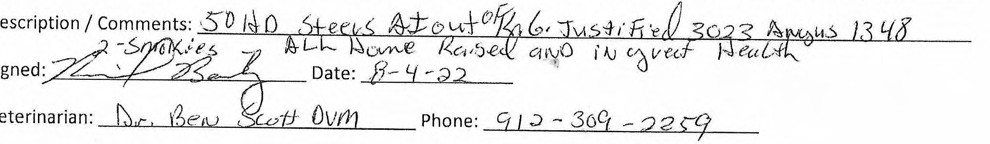 escription / Comments: 50 HD Steers AI out of K.G. Justified 3023 Angus 1348
2-Smokies ALL Home Raised and in great Health
gned: Date: 8-4-22
eterinarian: Dr. Ben Scott DVM Phone: 912-309-2259